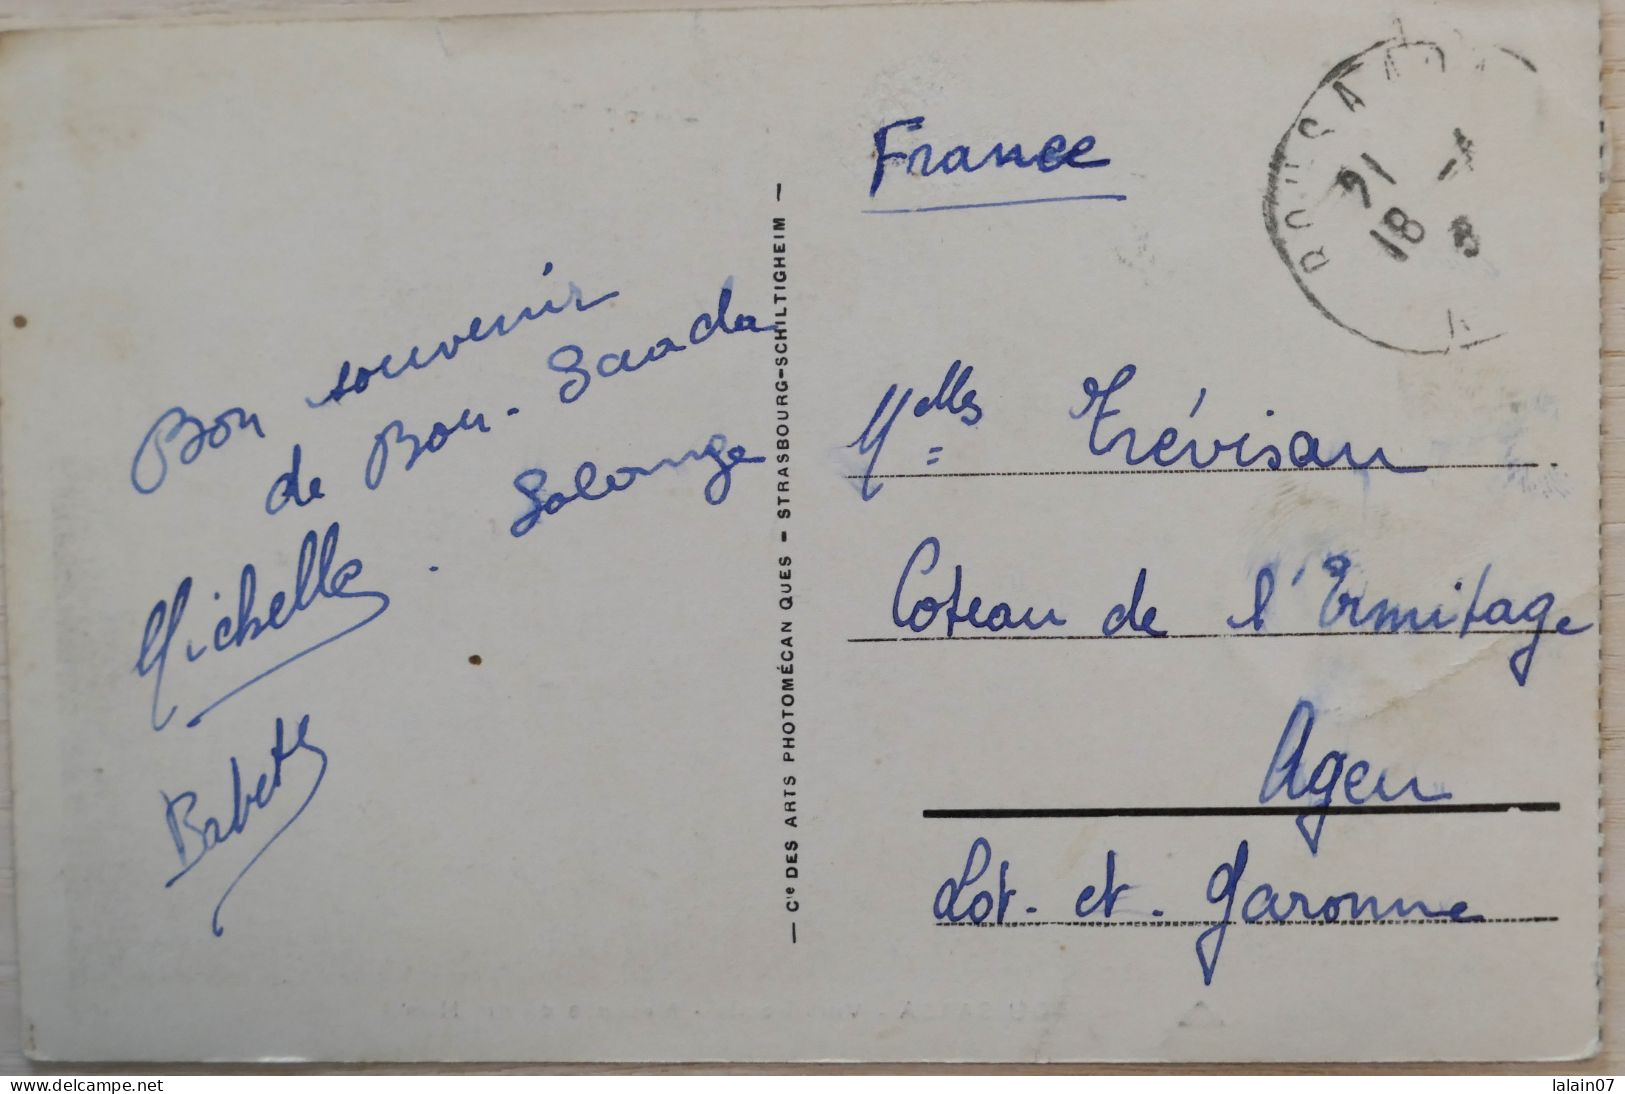 Bon souvenir
de Bou-Saada
Michelle . Solange
Babeth
— Cie DES ARTS PHOTOMÉCAN QUES — STRASBOURG-SCHILTIGHEIM —
France
BOU SAADA
21
18 -1
Melles Trévisan
Coteau de l'Ermitage
Agen
Lot-et-Garonne
delcampe.net
lalain07